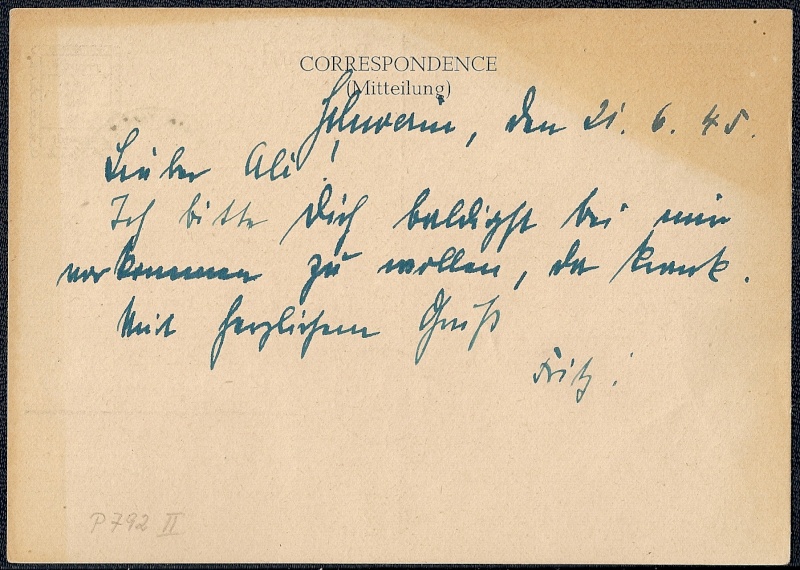 CORRESPONDENCE
(Mitteilung)
Schwerin, den 21. 6. 45.
Lieber Ali!
Ich bitte Dich baldigst bei mir
vorkommen zu wollen, da krank.
Mit herzlichem Gruß
Fritz!
P792 II